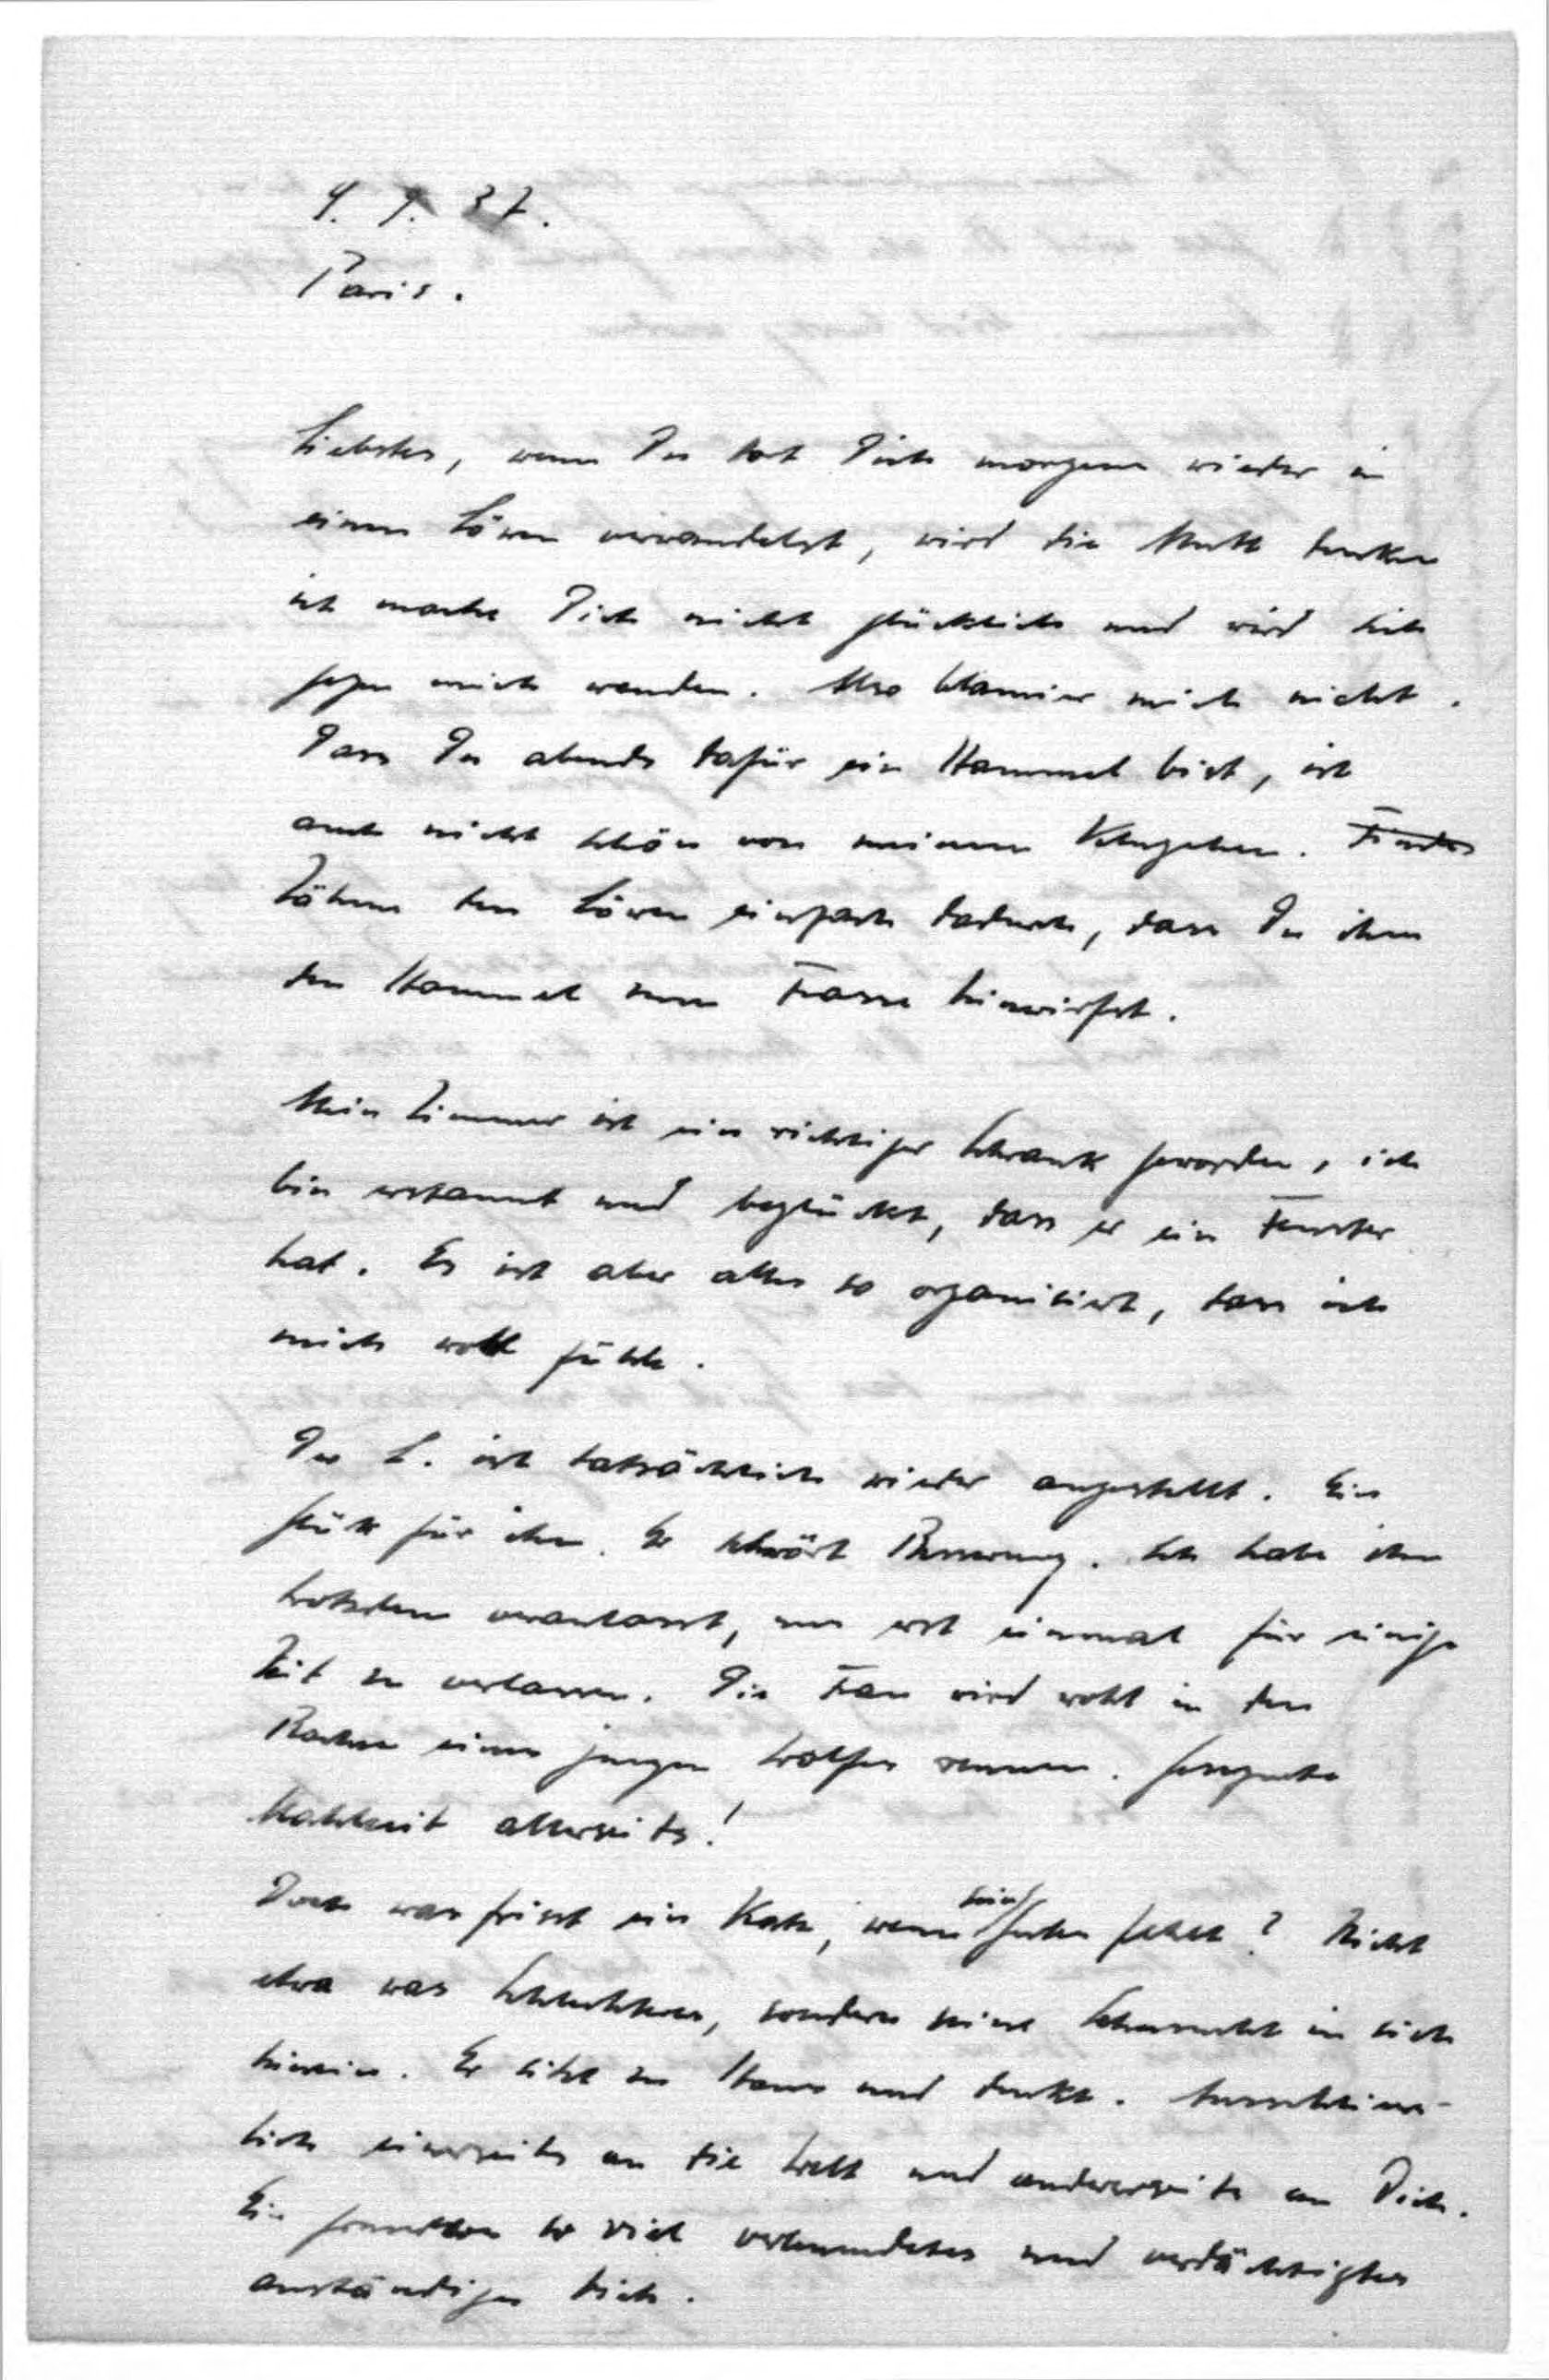 9. 9. 37.
Paris.
Liebster, wenn Du dort Dich morgens wieder in
einen Löwen verwandelst, wird die Mutt denken
ich mache Dich nicht glücklich und wird sich
gegen mich wenden. Also blamier mich nicht.
Dass Du abends dafür ein Hammel bist, ist
auch nicht schön von meinem
Zähme den Löwen einfach dadurch, dass Du ihm
den Hammel zum Frasse hinwirfst.
Mein Zimmer ist ein richtiger Schrank geworden, ich
bin erstaunt und beglückt, dass er ein Fenster
hat. Es ist aber alles so organisiert, dass ich
mich wohl fühle.
Der L. ist tatsächlich wieder angestellt. Ein
Glück für ihn. Er schwört Besserung. Ich habe ihn
trotzdem veranlasst, uns erst einmal für einige
Zeit zu verlassen. Die Frau wird wohl in den
Rachen eines jungen Wolfes rennen. Gesegnete
Mahlzeit allerseits!
Doch was frisst ein Kater, wenn sein fehlt? Nicht
etwa was Schlechteres, sondern seine Sehnsucht in sich
hinein. Er sitzt zu Haus und denkt. Ausschliess-
lich einerseits an die Welt und andererseits an Dich.
Ein so viel verleumdetes und verdächtigtes
anständiges Vieh.